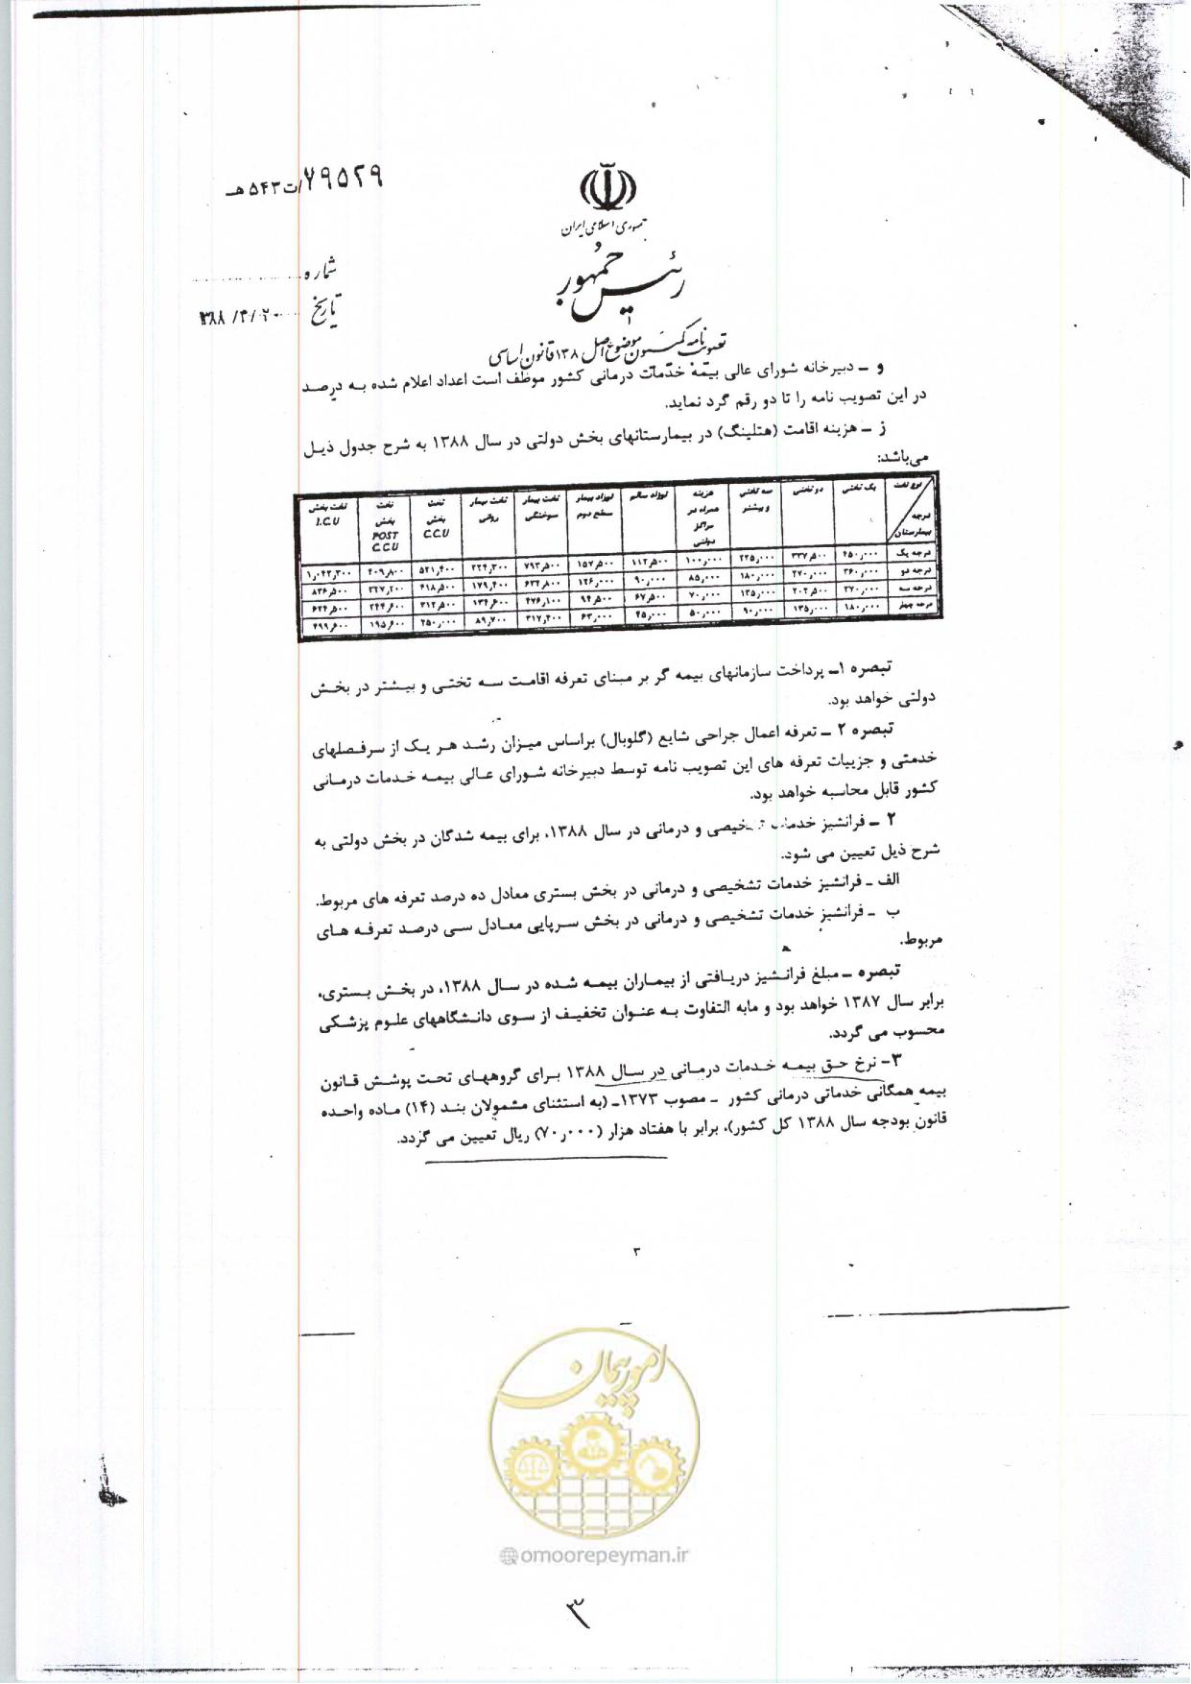 ۷۹۵۲۹/ت۵۴۳هـ
جمهوری اسلامی ایران
رئیس جمهور
شماره
تاریخ ۱۳۸۸/۴/۲۰
تصویب نامه کمیسیون موضوع اصل ۱۳۸ قانون اساسی
و ــ دبیرخانه شورای عالی بیمه خدمات درمانی کشور موظف است اعداد اعلام شده به درصد
در این تصویب نامه را تا دو رقم گرد نماید.
ز ــ هزینه اقامت (هتلینگ) در بیمارستانهای بخش دولتی در سال ۱۳۸۸ به شرح جدول ذیل
می‌باشد:
نوع تخت / درجه بیمارستان | یک تختی | دو تختی | سه تختی و بیشتر | هزینه همراه در مراکز دولتی | نوزاد سالم | نوزاد بیمار سطح دوم | تخت بیمار سوختگی | تخت بیمار روانی | تخت بخش C.C.U | تخت بخش POST C.C.U | تخت بخش I.C.U
درجه یک | ۴۵۰,۰۰۰ | ۳۳۷,۵۰۰ | ۲۲۵,۰۰۰ | ۱۰۰,۰۰۰ | ۱۱۲,۵۰۰ | ۱۵۷,۵۰۰ | ۷۹۳,۵۰۰ | ۲۲۴,۳۰۰ | ۵۲۱,۴۰۰ | ۴۰۹,۸۰۰ | ۱,۰۴۲,۳۰۰
درجه دو | ۳۶۰,۰۰۰ | ۲۷۰,۰۰۰ | ۱۸۰,۰۰۰ | ۸۵,۰۰۰ | ۹۰,۰۰۰ | ۱۲۶,۰۰۰ | ۶۳۴,۸۰۰ | ۱۷۹,۴۰۰ | ۴۱۸,۵۰۰ | ۳۲۷,۲۰۰ | ۸۳۶,۵۰۰
درجه سه | ۲۷۰,۰۰۰ | ۲۰۲,۵۰۰ | ۱۳۵,۰۰۰ | ۷۰,۰۰۰ | ۶۷,۵۰۰ | ۹۴,۵۰۰ | ۴۷۶,۱۰۰ | ۱۳۴,۶۰۰ | ۳۱۲,۵۰۰ | ۲۴۴,۶۰۰ | ۶۲۴,۵۰۰
درجه چهار | ۱۸۰,۰۰۰ | ۱۳۵,۰۰۰ | ۹۰,۰۰۰ | ۵۰,۰۰۰ | ۴۵,۰۰۰ | ۶۳,۰۰۰ | ۳۱۷,۴۰۰ | ۸۹,۷۰۰ | ۲۵۰,۰۰۰ | ۱۹۵,۶۰۰ | ۴۹۹,۶۰۰
تبصره ۱ــ پرداخت سازمانهای بیمه گر بر مبنای تعرفه اقامت سه تختی و بیشتر در بخش
دولتی خواهد بود.
تبصره ۲ ــ تعرفه اعمال جراحی شایع (گلوبال) براساس میزان رشد هر یک از سرفصلهای
خدمتی و جزییات تعرفه های این تصویب نامه توسط دبیرخانه شورای عالی بیمه خدمات درمانی
کشور قابل محاسبه خواهد بود.
۲ ــ فرانشیز خدمات تشخیصی و درمانی در سال ۱۳۸۸، برای بیمه شدگان در بخش دولتی به
شرح ذیل تعیین می شود.
الف ــ فرانشیز خدمات تشخیصی و درمانی در بخش بستری معادل ده درصد تعرفه های مربوط.
ب ــ فرانشیز خدمات تشخیصی و درمانی در بخش سرپایی معادل سی درصد تعرفه های
مربوط.
تبصره ــ مبلغ فرانشیز دریافتی از بیماران بیمه شده در سال ۱۳۸۸، در بخش بستری،
برابر سال ۱۳۸۷ خواهد بود و مابه التفاوت به عنوان تخفیف از سوی دانشگاههای علوم پزشکی
محسوب می گردد.
۳- نرخ حق بیمه خدمات درمانی در سال ۱۳۸۸ برای گروههای تحت پوشش قانون
بیمه همگانی خدماتی درمانی کشور ــ مصوب ۱۳۷۳ــ (به استثنای مشمولان بند (۱۴) ماده واحده
قانون بودجه سال ۱۳۸۸ کل کشور)، برابر با هفتاد هزار (۷۰,۰۰۰) ریال تعیین می گردد.
۳
امور پیمان
@omoorepeyman.ir
۳